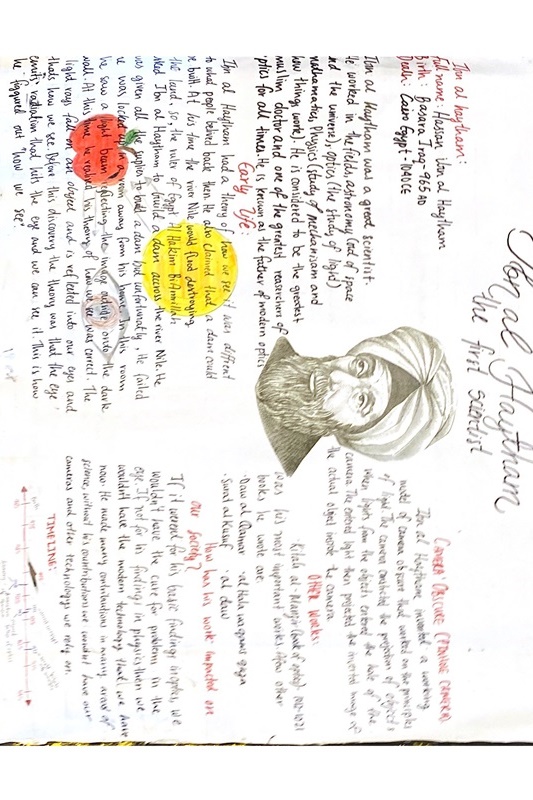 Ibn al Haytham
the first scientist
Ibn al haytham:
full name: Hassan ibn al Haytham
Birth: Basara Iraq - 965 AD
Death: Cairo Egypt 1040CE
Ibn al Haytham was a great scientist.
He worked in the fields, astronomy (and of space
and the universe), optics (the study of light)
mathematics, Physics (study of mechanisam and
how things work). He is considered to be the greatest
muslim doctor and one of the greatest researchers of
optics for all times. He is known as the father of modern optics
Early Life:
Ibn al Haytham had a theory of how we see it was diffrent
to what people belived back then. He also claimed that a dam could
be built. At his time the river Nile would flood destroying
the land, so the ruler of Egypt Al Hakim Bi Amrillah
asked Ibn al Haytham to build a dam accross the river Nile. He
was given all the suplies to build a dam but unfortunatly, he failed
He was locked up in a room away from his In this room
he saw a light beam reflecting the image onto the dark
wall. At this time he realised his theory of how we see was correct. The
light rays fall on an object and is reflected into our eyes and
thats how we see. Before this discovery the theory was that the eye
emits radiation that hits the eye and we can see it. This is how
he figgured out "how we see".
CAMERA OBSCURE (PINHOLE CAMERA)
Ibn al Haytham invented a working
model of camera obscure that worked on the principles
of light. The camera the projection of object's
when light from the objects entered the hole of the
camera. The entered light then projected the inverted image of
the actual object inside the camera.
OTHER WORKS:
Kitab al - Manazir (book of optics) 1012-1021
was his most important works. Afew other
books he wrote are:
· Daw al Qamar · al Hala wa qaws quzah
· Surat al Kusuf · al daw
How has his work impacted on
our society?
If it werend for his basic findings inoptics, we
wouldn't have the cure for problems in the
eye. If not for his findings in physics then we
wouldn't have the modern technology that we have
now. He made many contributions in many areas of
science, without his contributions we wouldn't have our
cameras and other technology we rely on.
TIMELINE: